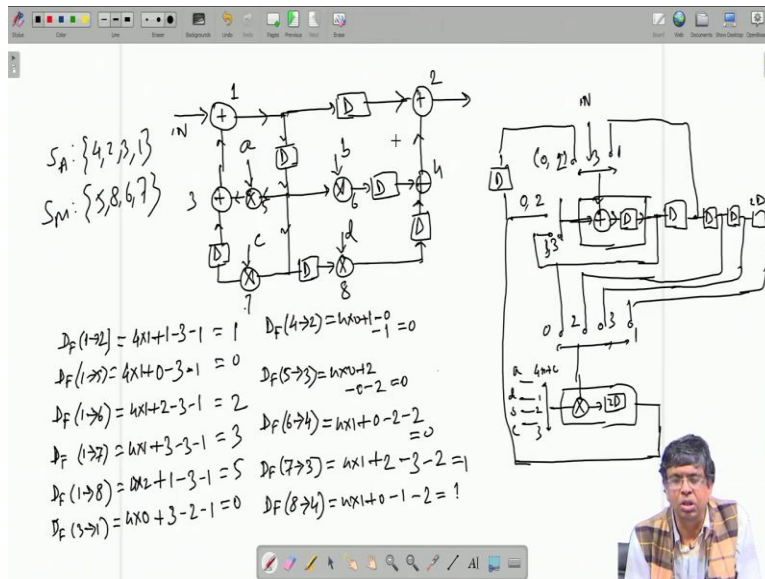 Stylus
Color
Line
Eraser
Backgrounds
Undo
Redo
Pages
Previous
Next
Erase
Board
Web
Documents
Show Desktop
OpenBoard
1
2
+
+
D
IN
IN
S_A: {4,2,3,1}
S_M: {5,8,6,7}
a
D
b
+
3
+
X
5
X
6
D
+
4
c
d
D
D
X
7
D
X
8
D_F(1→2) = 4x1+1-3-1 = 1
D_F(1→5) = 4x1+0-3-1 = 0
D_F(1→6) = 4x1+2-3-1 = 2
D_F(1→7) = 4x1+3-3-1 = 3
D_F(1→8) = 4x2+1-3-1 = 5
D_F(3→1) = 4x0+3-2-1 = 0
D_F(4→2) = 4x0+1-0
-1 = 0
D_F(5→3) = 4x0+2
-0-2 = 0
D_F(6→4) = 4x1+0-2-2
= 0
D_F(7→3) = 4x1+2-3-2 = 1
D_F(8→4) = 4x1+0-1-2 = 1
(0, 2)
3
1
D
0, 2
+
D
D
D
D
2D
3
0
2
3
1
a
4n+0
d
1
b
2
c
3
X
2D